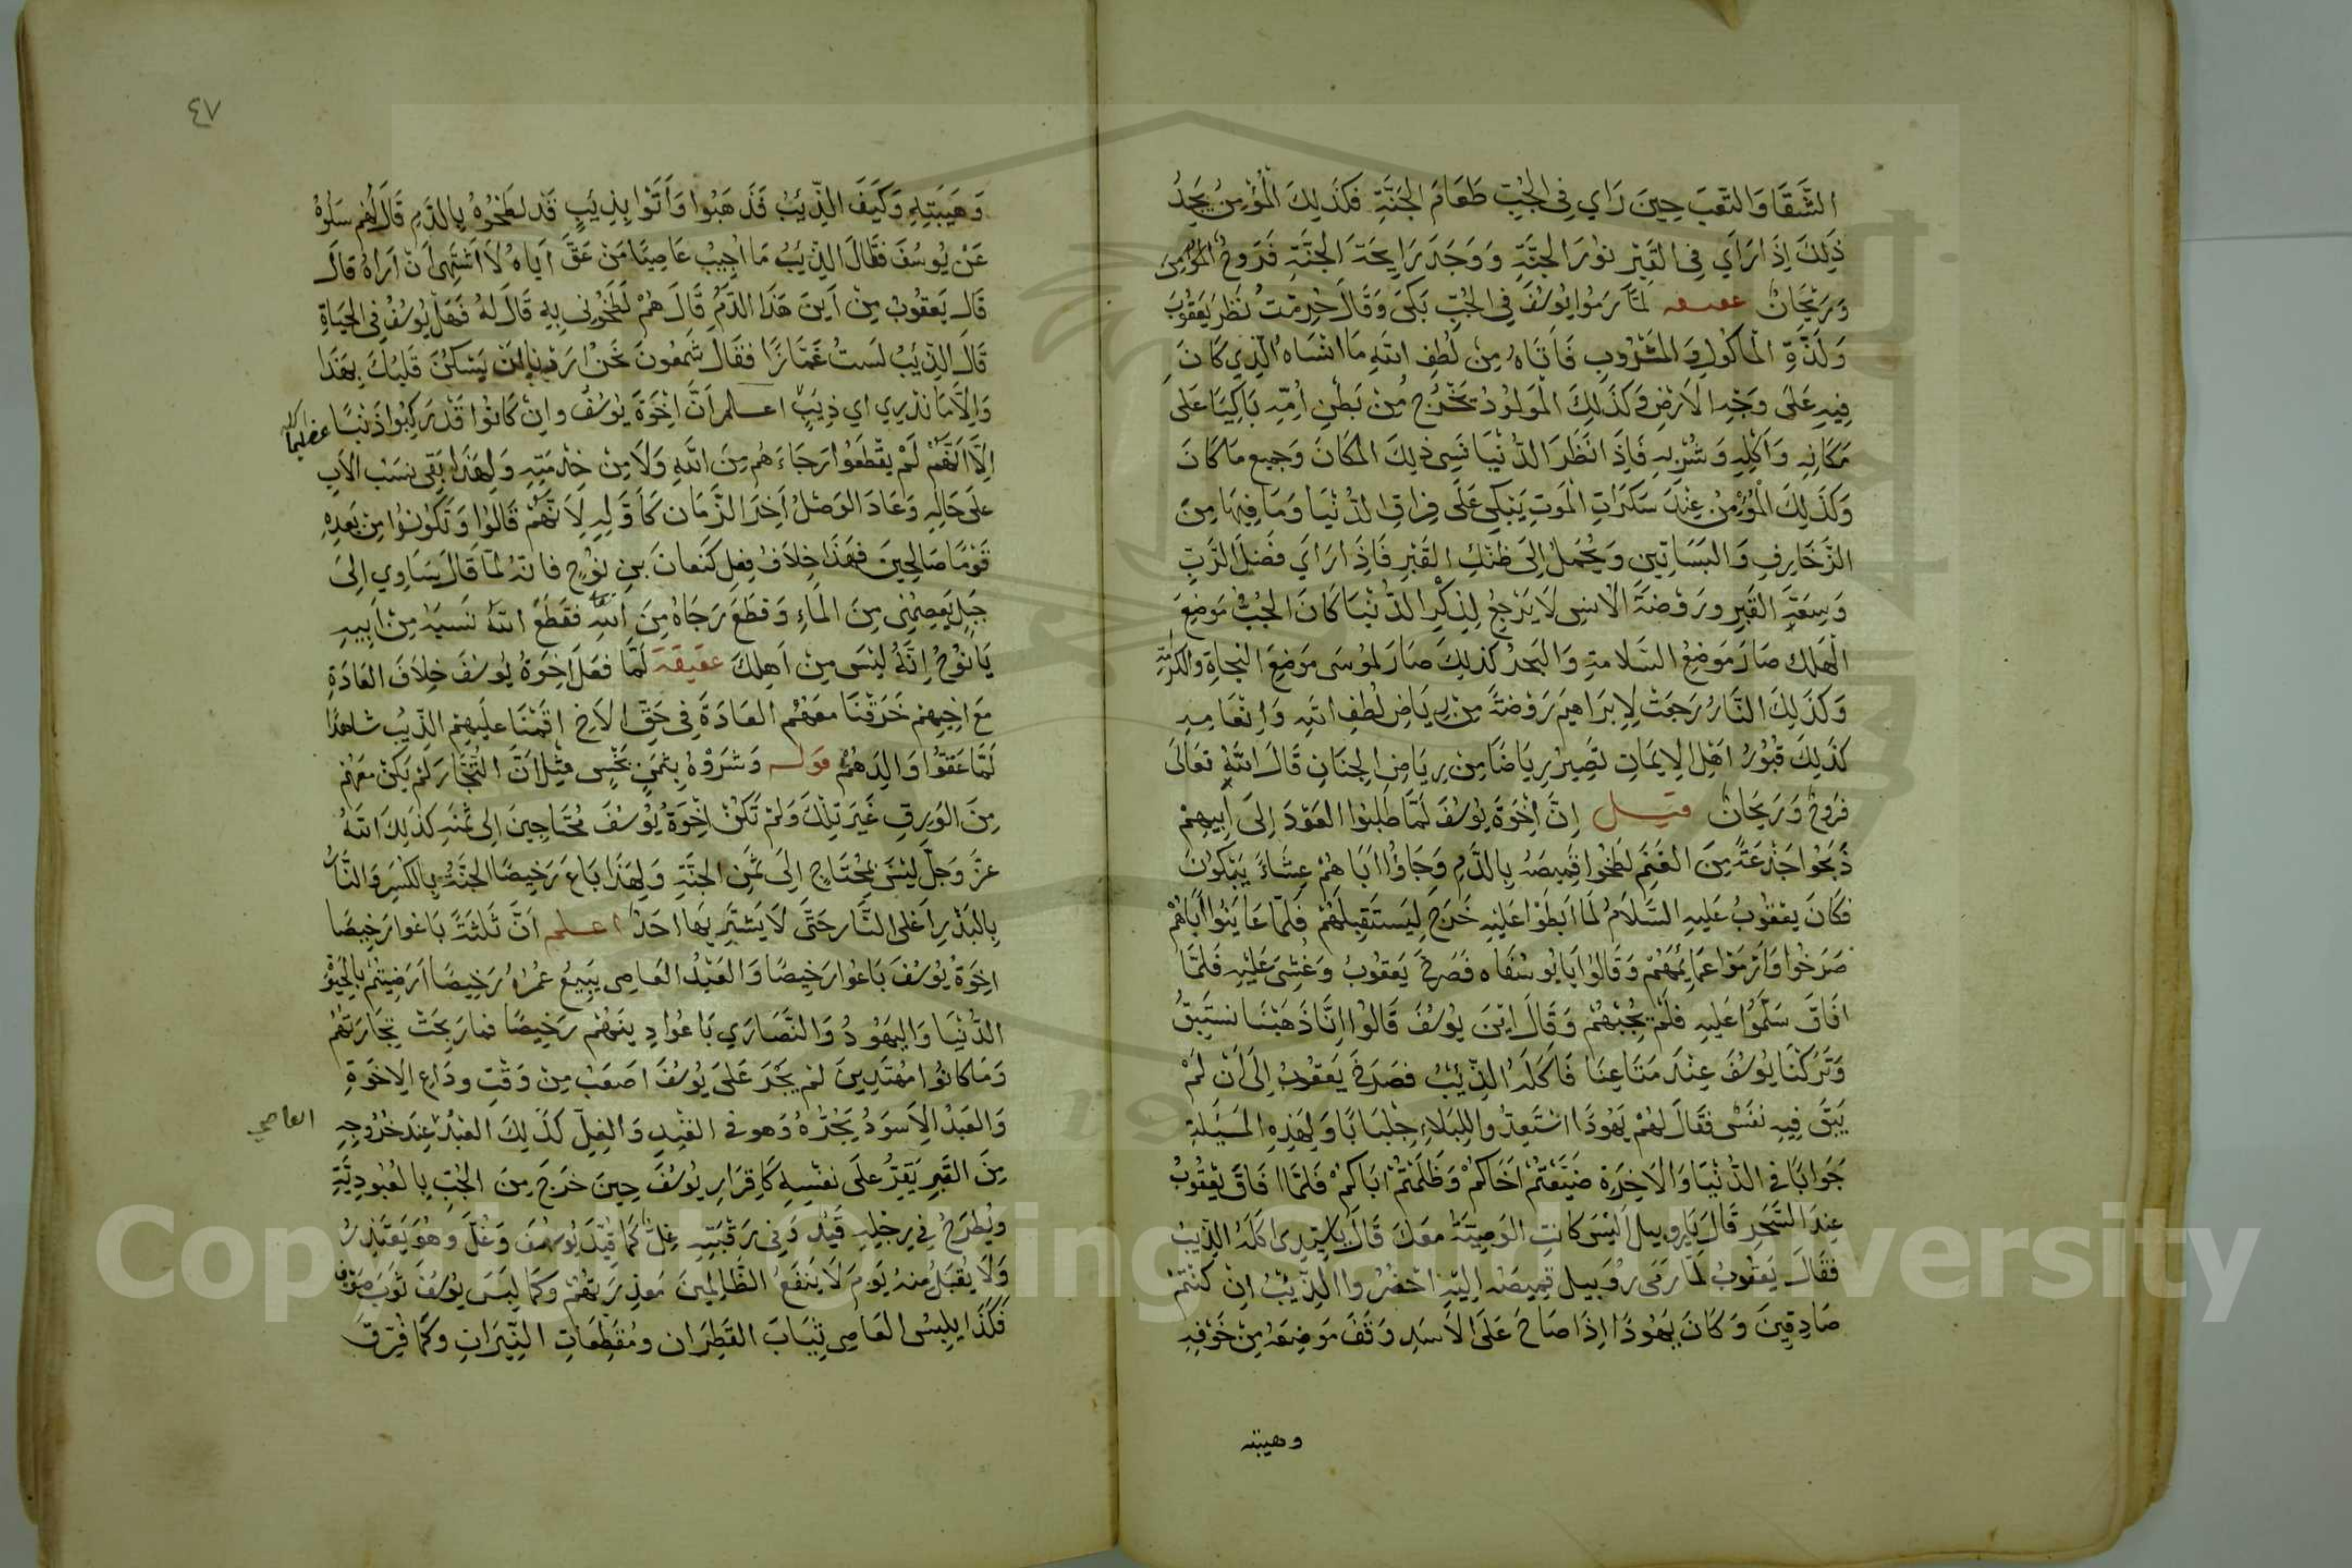 الشَّقَا وَالتعَبَ حِينَ رَاي فِي الجُبِّ طَعَامَ الجَنَّةِ فَكَذلِكَ الْمُؤْمِنُ يَجِدُ
ذٰلِكَ اِذَا رَاَي فِي القَبْرِ نوُرَ الجَنَّةِ وَوَجَدَ رَايِحَةَ الجَنَّةِ فَرَوحٌ المُؤْمِنِ
وَرَيْحَانٌ لمَّا رَمُوا يوُسُفَ فِي الجُبِّ بَكَى وَقَالَ حُرِمْتُ نَظَرَ يَعْقُوبَ
وَلَذَّةِ الْمَاكُولِ وَالمَشْرُوبِ فَاتَاهُ مِنْ لُطْفِ اللهِ مَا انْسَاهُ الَّذِي كَانَ
فِيهِ عَلَى وَجْهِ الاَرْضِ وَكَذَلِكَ الْمَولوُدُ يَخْرُجُ مِنْ بَطْنِ اُمِّهِ بَاكِيًا عَلَى
مَكَانِهِ وَاَكْلِهِ وَشُرْبِهِ فَاِذَا نَظَرَ الدُّنْيَا نَسِى ذلِكَ المَكَانَ وَجميع مَا كَانَ
وَكَذَلِكَ الْمُؤْمِنُ عِنْدَ سَكَرَاتِ الْمَوتِ يَبْكِي عَلَى فِرَاقِ الدُّنْيَا وَمَا فِيهَا مِنَ
الزَّخَارِفِ وَالبَسَاتِين وَيُحْمَلُ اِلَى ظنْكِ القَبْرِ فَاِذَا رَايَ فَضْلَ الرَّبِّ
وَسِعَةِ القَبْرِ وَرَوْضَةَ الاُنسِ لاَ يَرْجِعُ لِذِكْرِ الدُّنْيَا كَانَ الجُبُّ مَوضِعَ
الهَلَاك صَارَ مَوضِعُ السَّلَامَةِ وَالبَحرُ كَذلِكَ صَارَ لِمُوسَى مَوضِعَ النجَاةِ وَالكرَامَةِ
وَكَذَلِكَ النَّارُ رَجَعَتْ لاِبرَاهِيمَ رَوْضَةً مِنْ رِيَاضِ لُطْفِ اللهِ وَاِنْعَامِهِ
كَذَلِكَ قُبُورُ اَهْلِ الاِيمَانِ تصِيرُ رِيَاضًا مِنْ رِيَاضِ الجِنَانِ قَالَ اللهُ تعَالَى
فرَوحٌ وَرَيحَانٌ قيل اِنَّ اِخْوَةَ يوُسُفَ لَمَّا طَلبُوا العَوْدَ اِلَى اَبِيهِمْ
ذَبَحُوا جَذْعَةً مِنَ الغَنَمِ لَطَخُوا قَمِيصَهُ بِالدَّمِ وَجَاؤُا اَبَاهُمْ عِشَاءً يَبْكُونَ
فَكَانَ يعْقُوبُ عَلَيهِ السَّلَامُ لَمَا ابَطَوْا عَلَيْهِ خَرَجَ لِيَستَقبِلَهُمْ فَلَمَّا عَايَنُوا اَبَاهُمْ
صَرَخُوا وَارمَوْا عمَايمَهُمْ وَقَالوُا يَا يوُسُفَاه فَصَرَخَ يَعقوُبُ وَغُشِى عَلَيْهِ فَلَمَّا
افَاقَ سَلَّمُوا عَلَيهِ فَلَمْ يُجِبْهُمْ وَقَالَ ايْنَ يوُسُفَ قَالوُا اِنَّا ذَهَبْنَا نستَبِقُ
وَتَرَكْنَا يوُسُفَ عِنْدَ مَتَاعِنَا فَاَكَلَهُ الذِّئْبُ فصَرَخَ يَعْقوُبُ اِلَى اَنْ لَمْ
يَبْقَ فِيهِ نفَسٌ فقَالَ لهُمْ يَهُودَا اسْتَعِدُّوا لِلبَلَاءِ جِلبَابًا وَلِهَذِهِ المَسْئلةِ
جَوابًا في الدُّنْيَا وَالاَخِرَةِ ضَيَّعْتُمْ اَخَاكُمْ وَظَلَمْتُمْ ابَاكُمْ فَلَمَّا افَاقَ يَعْقُوبُ
عِندَ السَّحَرِ قَالَ يَا رُوبيل اَليْسَ كَانتِ الوَصِيَّةُ مَعَكَ قَالَ يَا سَيِّدِى اكَلَهُ الذِّيبُ
فَقَالَ يَعقوُبُ لمَّا رَمَى رُوبيل قمِيصَهُ اِليْهِ احْضُرُوا الذِّيْبَ اِنْ كُنْتُمْ
صَادِقِينَ وَكَانَ يَهُودَا اِذَا صَاحَ عَلَى الاَسَدِ وَقَفَ مَوضِعَهُ مِنْ خَوْفِهِ
وهيبته
٤٧
وَهَيبَتِهِ وَكَيْفَ الذِّيْبُ فَذَهَبُوا وَأَتَوْا بِذِيْبٍ قَدْ لَطَخُوهُ بِالدَّمِ قَالَ لَهُم سَلُوهُ
عَنْ يُوسُفَ فقَالَ الذِّيْبُ مَا اُجِيْبُ عَاصِيًا مَنْ عَقَّ اَبَاهُ لَا اَشْتَهِى اَنْ اَرَاهُ قَالَ
قَالَ يَعقُوبُ مِنْ اَينَ هَذَا الدَّمُ قَالَ هُمْ لَطَخُونِي بِهِ قَالَ لهُ فَهَل يوُسُفُ فِي الحَيَاةِ
قَالَ الذِّيْبُ لَستُ غَمَّازًا فَقَالَ شَمعُونَ نَحْنُ اَرَدْنَا اَنْ يَسْكُنَ قَلبُكَ بِهَذَا
وَاِلَّا مَا نَدْرِي اي ذِيْبٍ اعلم اَنَّ اِخْوَةَ يوُسُفُ وَاِنْ كَانُوا قَدْ رَكِبُوا ذَنْبًا عظيمًا
اِلَّا اَنَّهُمْ لَمْ يَقْطَعُوا رَجَاءَهُم مِنَ اللهِ وَلَا مِنْ خِدْمَتِهِ وَلِهَذَا بَقِي نسَبُ الاَبِ
عَلَى حَالِهِ وَعَادَ الوَصْلُ اَخِرَ الزَّمَان كَاَوَّلِهِ لاَنَّهُمْ قَالوُا وَتَكوُنوُا مِنْ بَعدِهِ
قَوْمًا صَالِحِينَ فهَذَا خِلَافُ فِعلِ كَنعَانَ بنِ نوُحٍ فَانهُ لَمَّا قَالَ سَاوِي اِلَى
جَبَلٍ يَعصِمُنِى مِنَ المَاءِ وَقطَعَ رَجَاهُ مِنَ اللهِ فقَطَعَ اللهُ نَسبَهُ مِنْ اَبِيهِ
يَانوُحُ اِنَّهُ ليْسَ مِنْ اَهلِكَ عَقيقَة لَمَّا فعَلَ اِخوَةُ يوُسُفَ خِلَافَ العَادَةِ
مَعَ اخِيهِم خَرَقنَا معَهُمُ العَادَةَ فِي حَقِّ الاَخِ اقَمْنَا علَيهِم الذِّيبَ شاهدًا
لَمَّا عَقوُّا وَالِدَهُمْ قوله وَشَرَوْهُ بِثَمَنٍ بَخْسٍ قيْلَ اَنَّ التُّجَّارَ لَمْ يَكُنْ معَهُم
مِنَ الوَرِقِ غَيرَ تِلْكَ وَلَمْ تَكُنْ اِخْوَةُ يُوْسُفَ مُحتَاجِينَ اِلى ثمَنِهِ كَذلِكَ اللهُ
عزَّ وَجَلَّ ليْسَ بِمُحتَاجٍ اِلَى ثَمَنِ الجنَّةِ وَلِهَذَا بَاعَ رَخِيصًا الجنَّةَ بِالكَسْرِ وَالنَّارَ
بِالبَدْرِ اَغلى النَّارَ حَتَّى لَا يَشْتَرِيهَا احَدٌ اعلم اَنَّ ثَلثةً بَاعُوا رَخِيصًا
اخِوَةُ يوُسُفَ بَاعُوا رَخِيصًا وَالعَبْدُ العَاصِى يبِيعُ عُمْرَهُ رَخِيصًا اَرَضِيتُمْ بِالحَيَوةِ
الدُّنْيَا وَاليَهُودُ وَالنَّصَارَي بَاعُوا دِينَهُم رَخِيصًا فمَا رَبِحَتْ تِجَارَتهُمْ
وَمَا كَانُوا مُهْتَدِينَ لمْ يَجْدَ عَلَى يوُسُفَ اصَعَبُ مِنْ وَقْتِ ودَاعِ الاِخوَةِ
وَالعَبْدُ الاَسوَدُ يَجُرُّهُ وَهوَ فِي القَيْدِ وَالغِلِّ كَذَلِكَ العَبْدُ عِندَ خُرُوجِهِ
العاصي
مِنَ القَبرِ يَقِرُّ علَى نفسِهِ كَاِقرَارِ يوُسُفَ حِينَ خَرَجَ مِنَ الجُبِّ بِالعُبُودِيَّةِ
وَيُطرَحُ فِي رِجْلِهِ قَيْدٌ وَفِي رَقَبَتِهِ غِلٌّ كَمَا قُيِّدَ يوُسُفَ وَغُلَّ وهُوَ يَعتَذِرُ
وَلَا يُقبَلُ مِنهُ يَومَ لَا يَنْفَعُ الظَّالِمِينَ مَعذِرَتهُمْ وَكمَا لَبِسَ يوُسُفَ ثَوبَ صُوفٍ
فَكَذَا يلبِسُ العَاصِى ثِيَابَ القَطِرَان ومُقَطِّعَاتِ النِّيْرَانِ وكمَا فُرِّقَ
Copyright © King Saud University